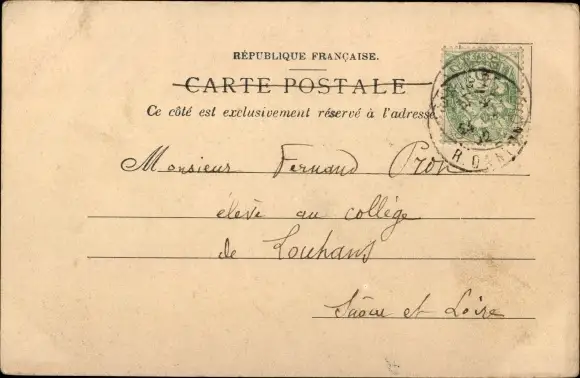 RÉPUBLIQUE FRANÇAISE.
CARTE POSTALE
Ce côté est exclusivement réservé à l'adresse
Monsieur Fernand
élève au collège
de Louhans
Saône et Loire
R. DANTON